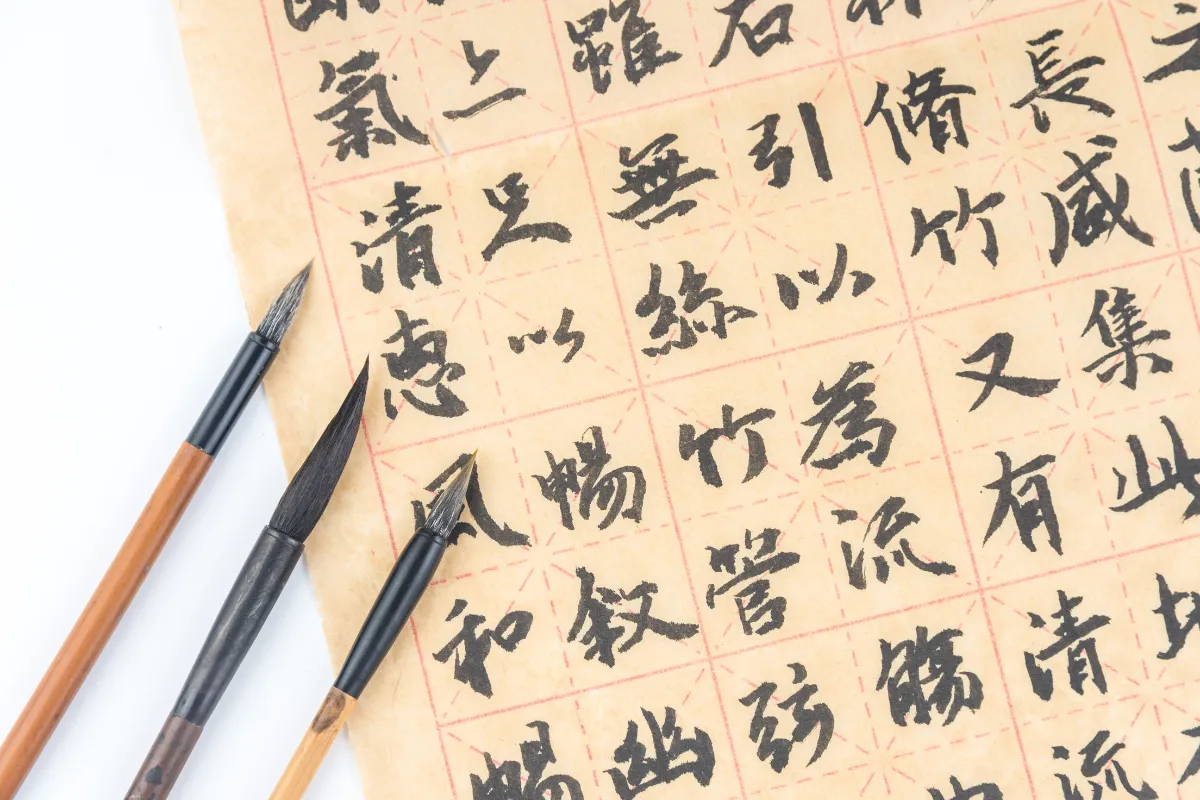 長咸集此地
脩竹又有清流
右引以為流觴
雖無絲竹管弦
上足以暢叙幽
氣清惠風和暢